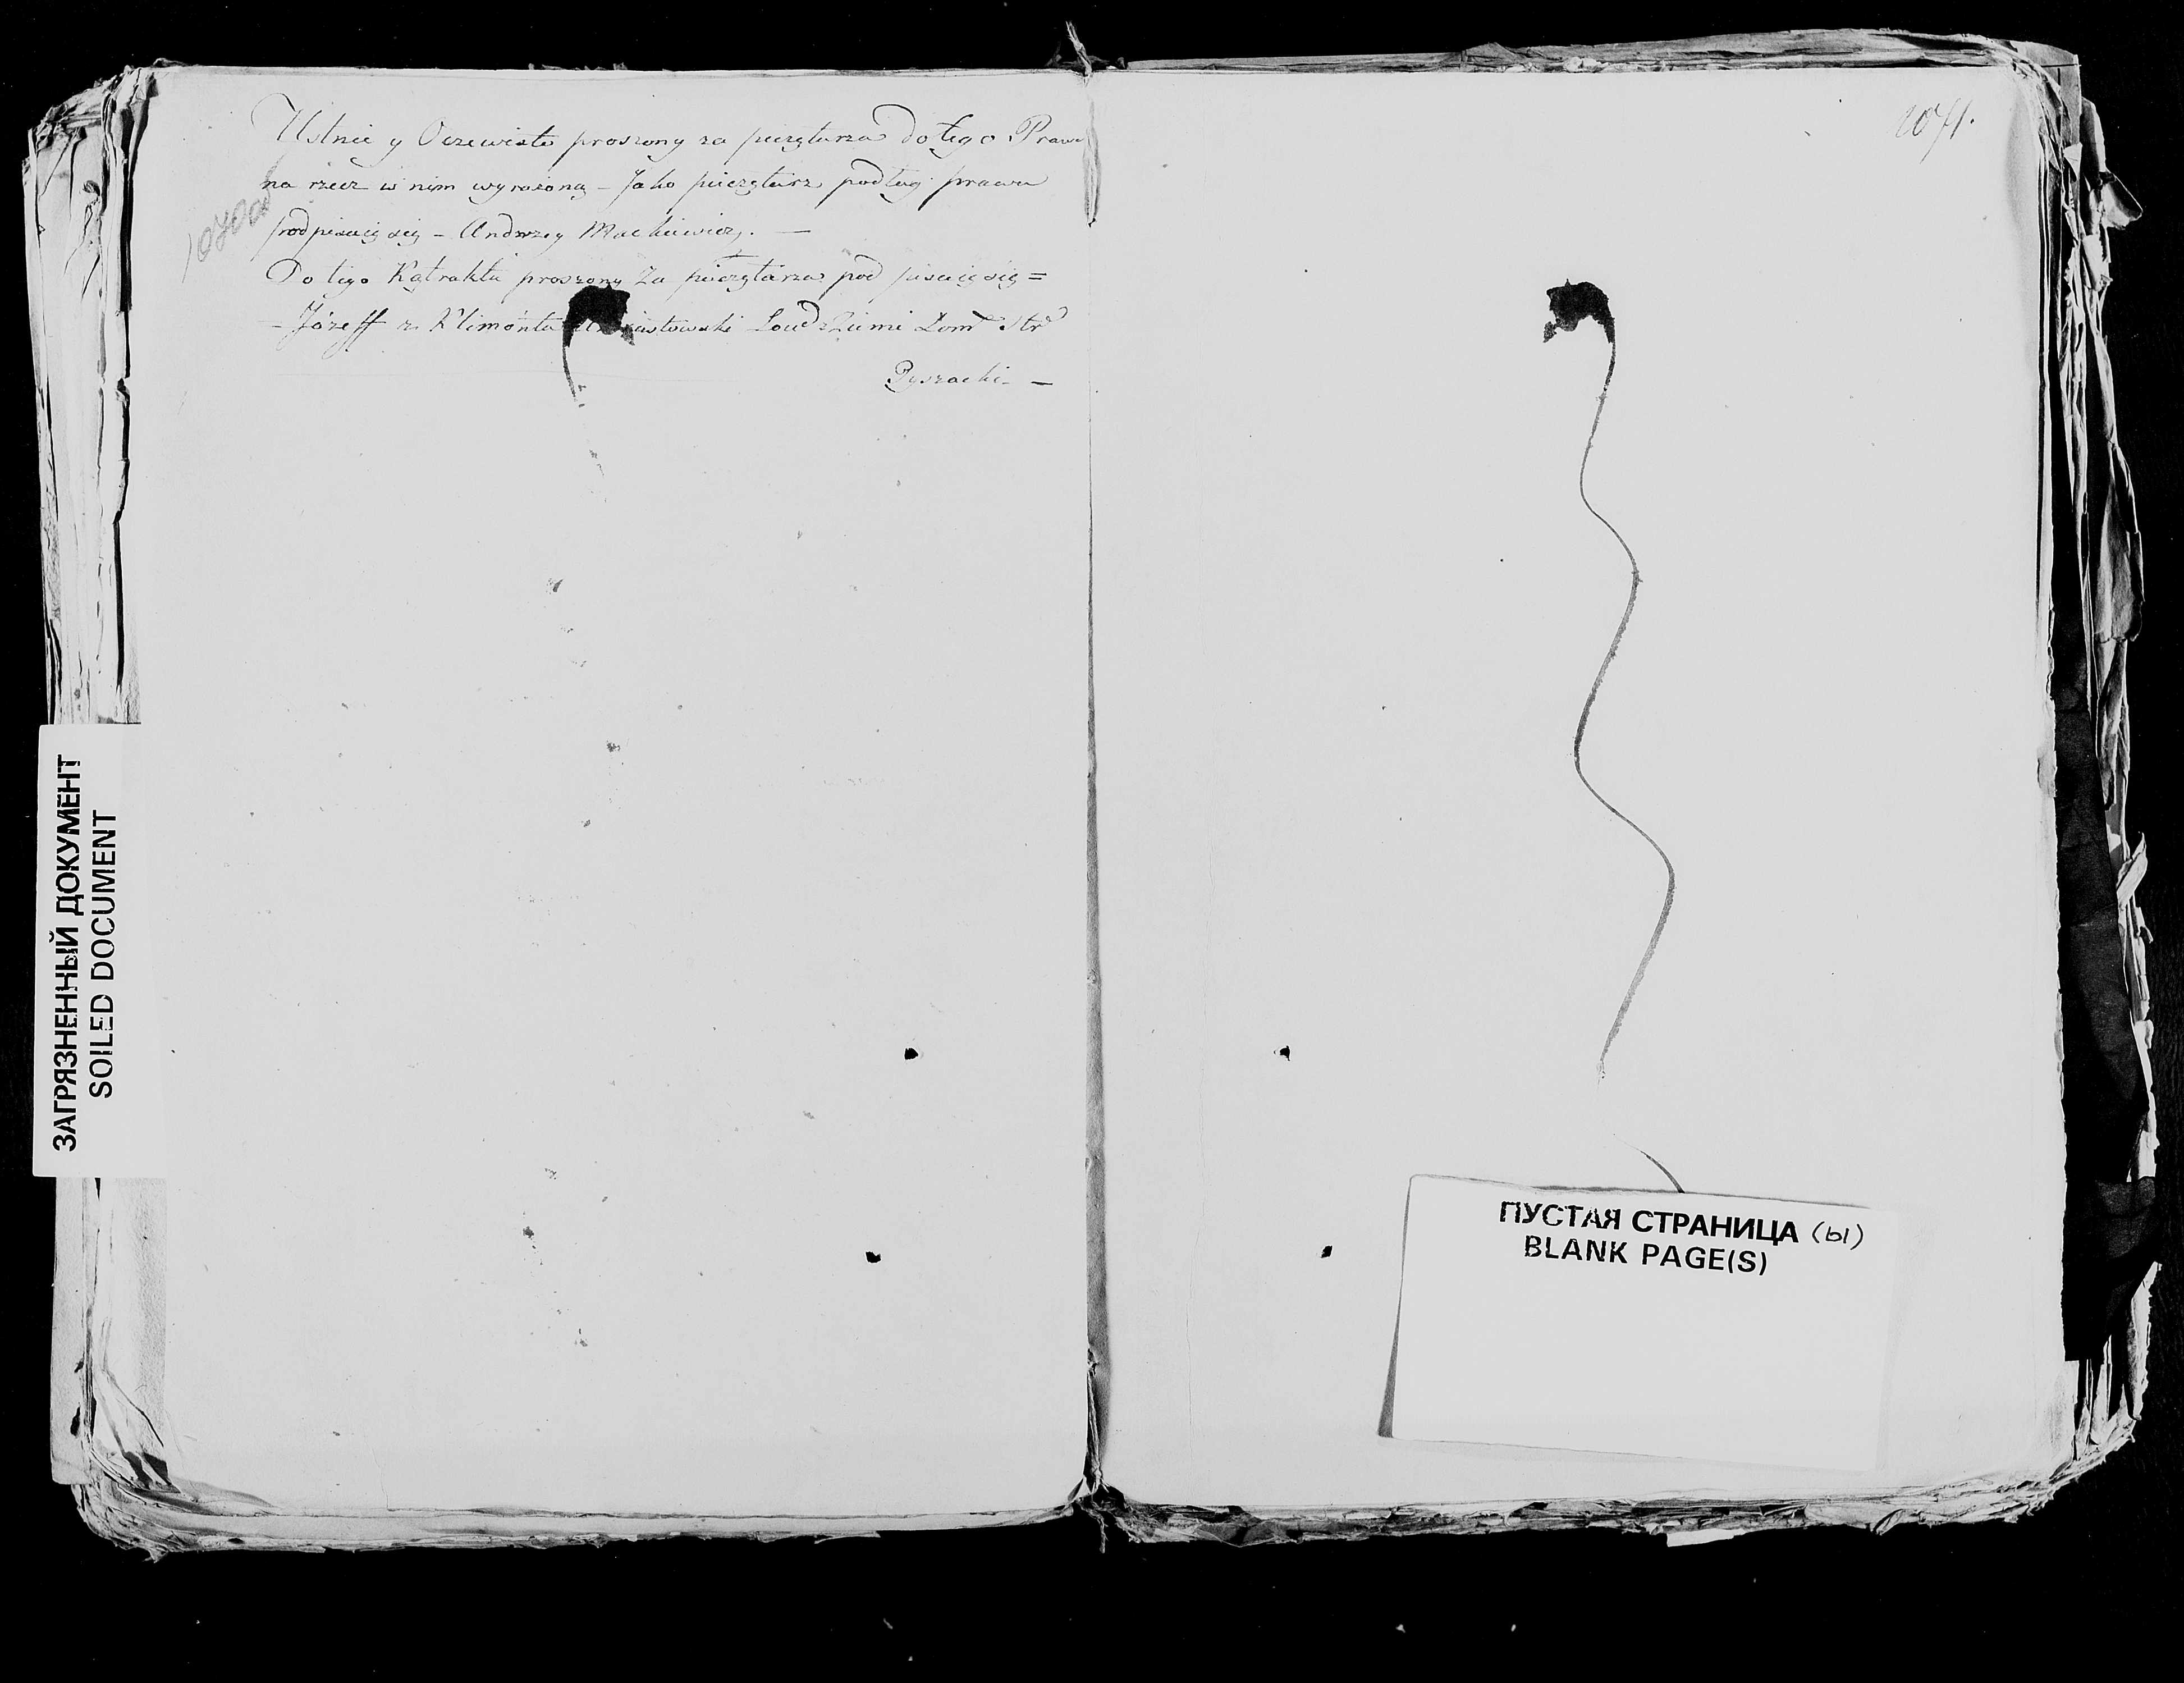 Ustnie y Oczewisto proszony za pieczętarza do tego Prawa
na rzecz w nim wyrażoną – Jako pieczętarz podług prawa
podpisuię się – Andrzey Mackiewicz. —
Do tego Kątraktu proszony Za pieczętarza pod pisuię się =
– Józeff z Klimonta Ziemi Łom Str
Pyszacki –
1071.
ЗАГРЯЗНЕННЫЙ ДОКУМЕНТ
SOILED DOCUMENT
ПУСТАЯ СТРАНИЦА (ы)
BLANK PAGE(S)